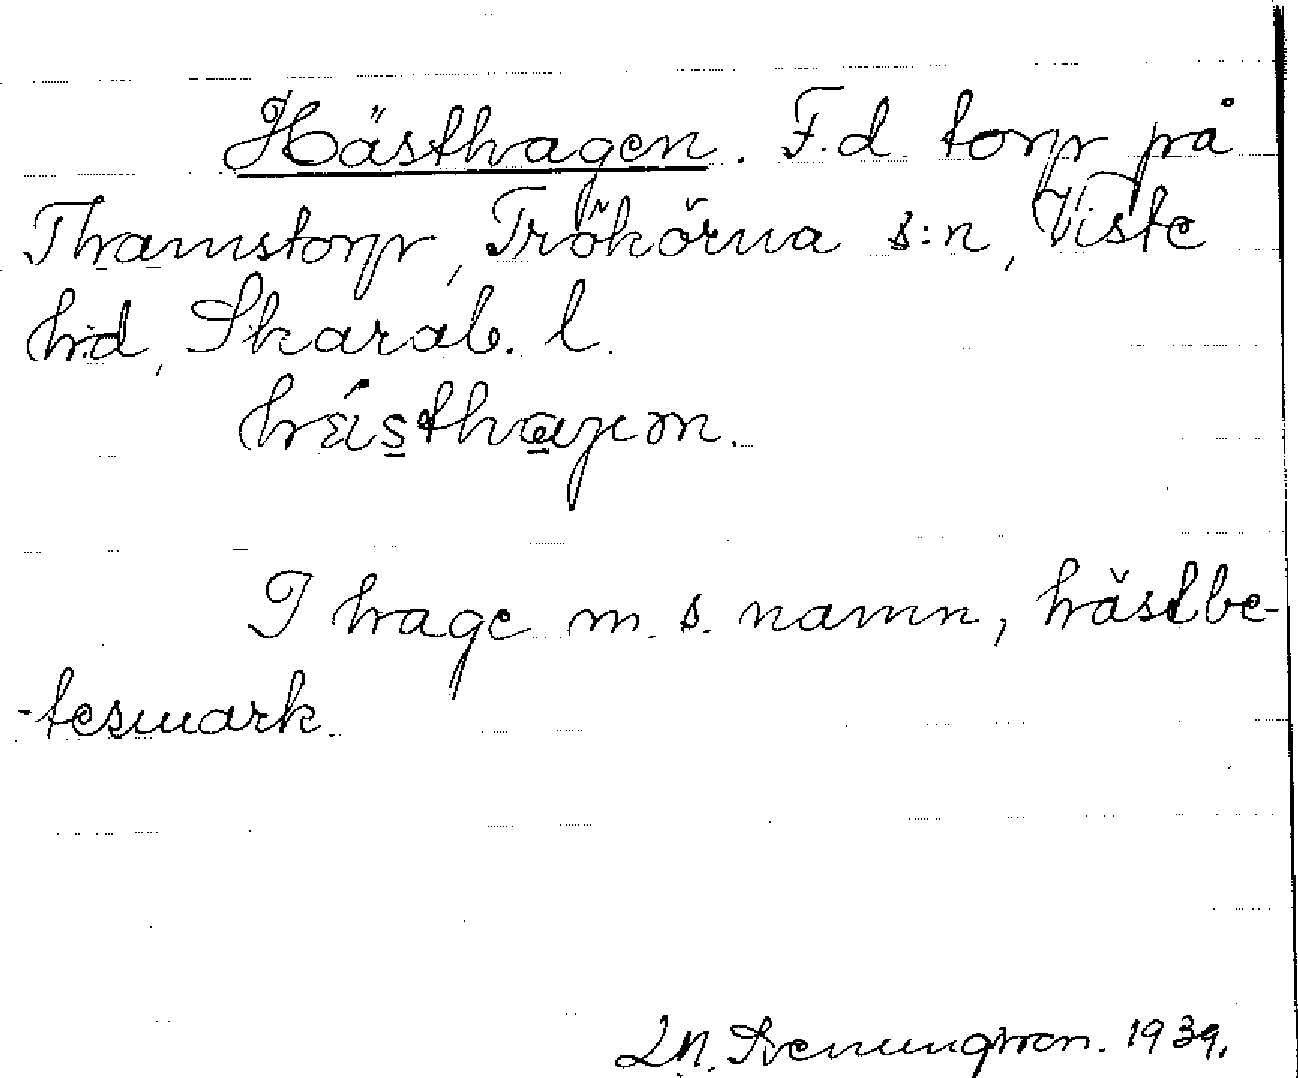 Hästhagen. F.d torp på
Thamstorp, Trökörna s:n, Viste
hd, Skarab. l.
hästhagen.
I hage m. s. namn, hästbe-
-tesmark.
Svenungsson. 1939.